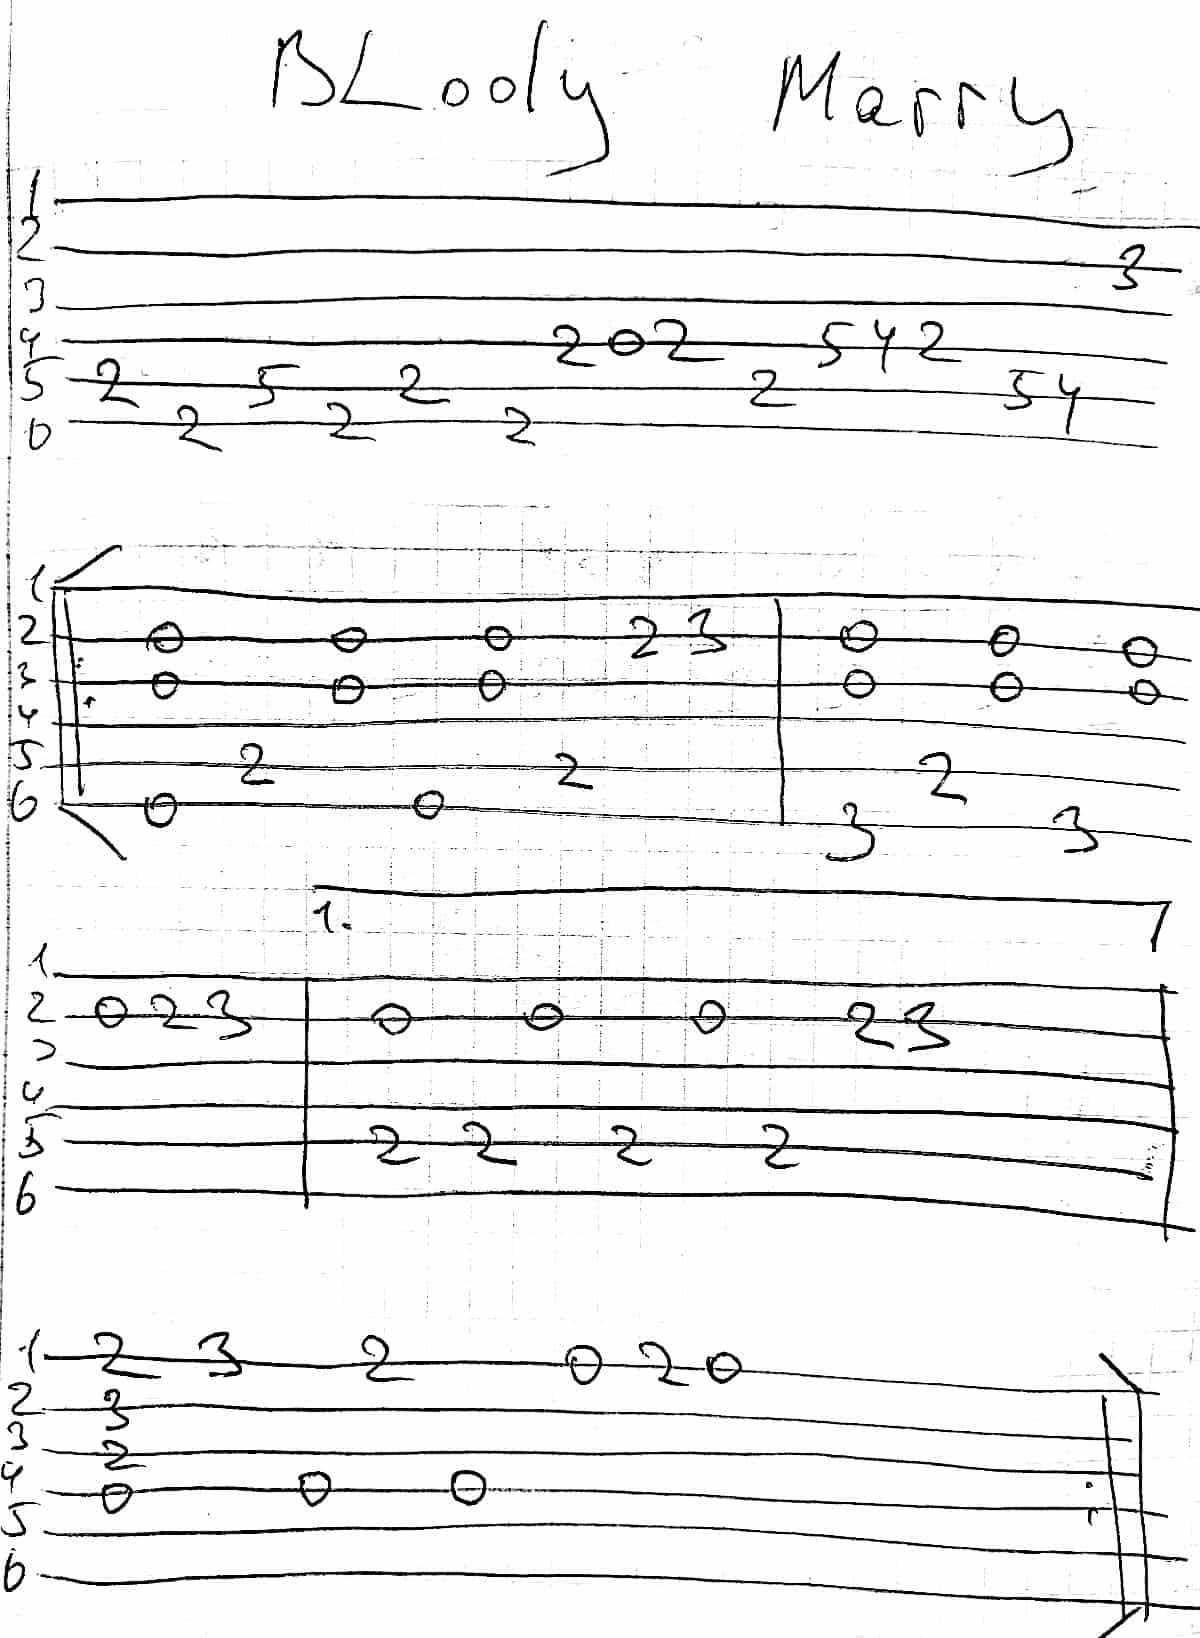 BLoody Marry
1
2 3
3
4 2 0 2 5 4 2
5 2 5 2 2 5 4
6 2 2 2
1
2 0 0 0 2 3 0 0 0
3 0 0 0 0 0 0
4
5 2 2 2
6 0 0 3 3
1.
1
2 0 2 3 0 0 0 2 3
3
4
5 2 2 2 2
6
1 2 3 2 0 2 0
2 3
3 2
4 0 0 0
5
6